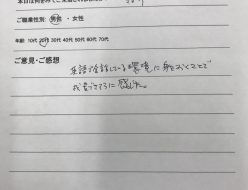 ご職業性別: 男性 ・ 女性
年齢: 10代 20代 30代 40代 50代 60代 70代
ご意見・ご感想
英語で会話している環境に身をおくことで
成長できるように感じた。